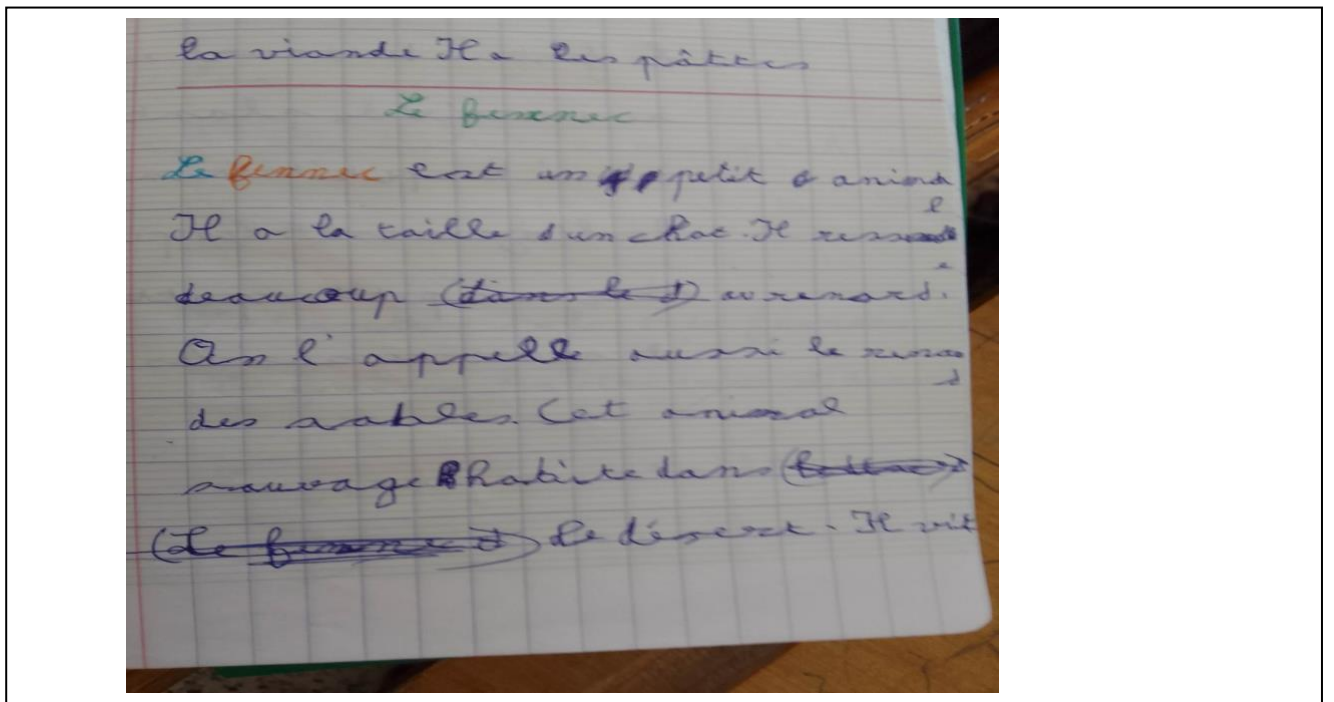 la viande Il a les pâttes
Le fennec
Le fennec est un petit animal
Il a la taille d'un chat. Il ressemble
beaucoup au renard.
On l'appelle aussi le renard
des sables. Cet animal
sauvage habite dans
le désert. Il vit